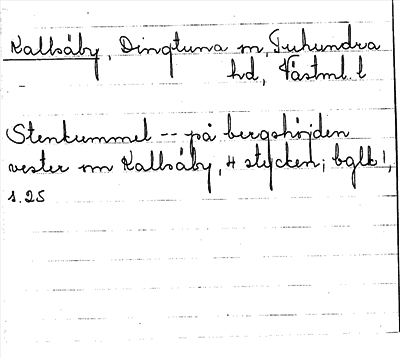 Kallsåby, Dingtuna sn, Tuhundra
hd, Västml. l
Stenkummel -- på bergshöjden
vester om Kallsåby, 4 stycken; bglb 1,
s. 25